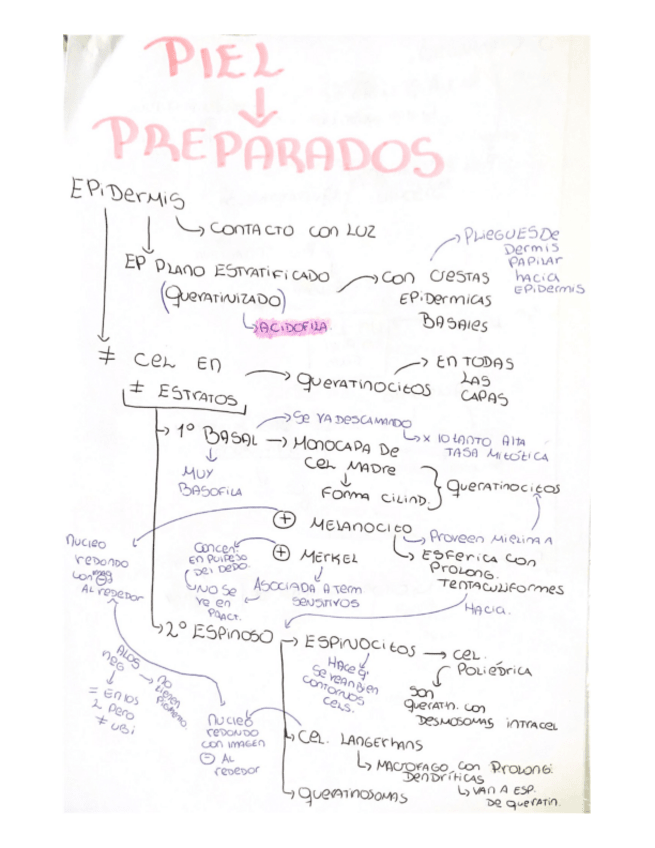 PIEL
PREPARADOS
EPIDERMIS
CONTACTO CON LUZ
EP PLANO ESTRATIFICADO
(QUERATINIZADO)
ACIDOFILA
CON CRESTAS
EPIDERMICAS
BASALES
PLIEGUES DE
DERMIS
PAPILAR
hacia
EPIDERMIS
≠ CEL EN
≠ ESTRATOS
QUERATINOCITOS
EN TODAS
LAS
CAPAS
1º BASAL
Se VA DESCAMANDO
x lo tanto Alta
TASA MITÓTICA
MUY
BASOFILA
MONOCAPA DE
CEL MADRE
FORMA CILIND.
QUERATINOCITOS
+ MELANOCITO
Proveen MIELINA A
ESFERICA CON
PROLONG.
TENTACULIFORMES
HACIA.
NUCLEO
REDONDO
CON IMAG
AL REDEDOR
+ MERKEL
CONCEN.
EN PULPEJO
DEL DEDO.
NO SE
VE EN
PRACT.
ASOCIADA A TERM
SENSITIVOS
2º ESPINOSO
ESPINOCITOS
CEL.
POLIÉDRICA
SON
QUERATIN. CON
DESMOSOMAS INTRACEL
HACE Q'
SE VEAN BIEN
CONTORNOS
CELS.
HALOS
NEG
NO
TIENEN
PIGMENTO.
= EN LOS
2 PERO
≠ UBI
NUCLEO
REDONDO
CON IMAGEN
⊖ AL
REDEDOR
CEL. LANGERHANS
MACROFAGO CON PROLONG.
DENDRÍTICAS
VAN A ESP.
DE QUERATIN.
QUERATINOSOMAS